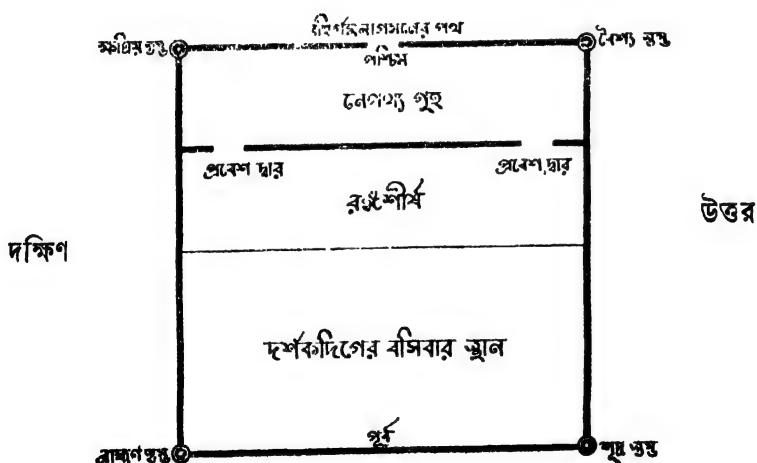 বহির্গমনাগমনের পথ
ক্ষত্রিয় স্তম্ভ
বৈশ্য স্তম্ভ
পশ্চিম
নেপথ্য গৃহ
প্রবেশ দ্বার
প্রবেশ দ্বার
রঙ্গশীর্ষ
উত্তর
দক্ষিণ
দর্শকদিগের বসিবার স্থান
পূর্ব
ব্রাহ্মণ স্তম্ভ
শূদ্র স্তম্ভ